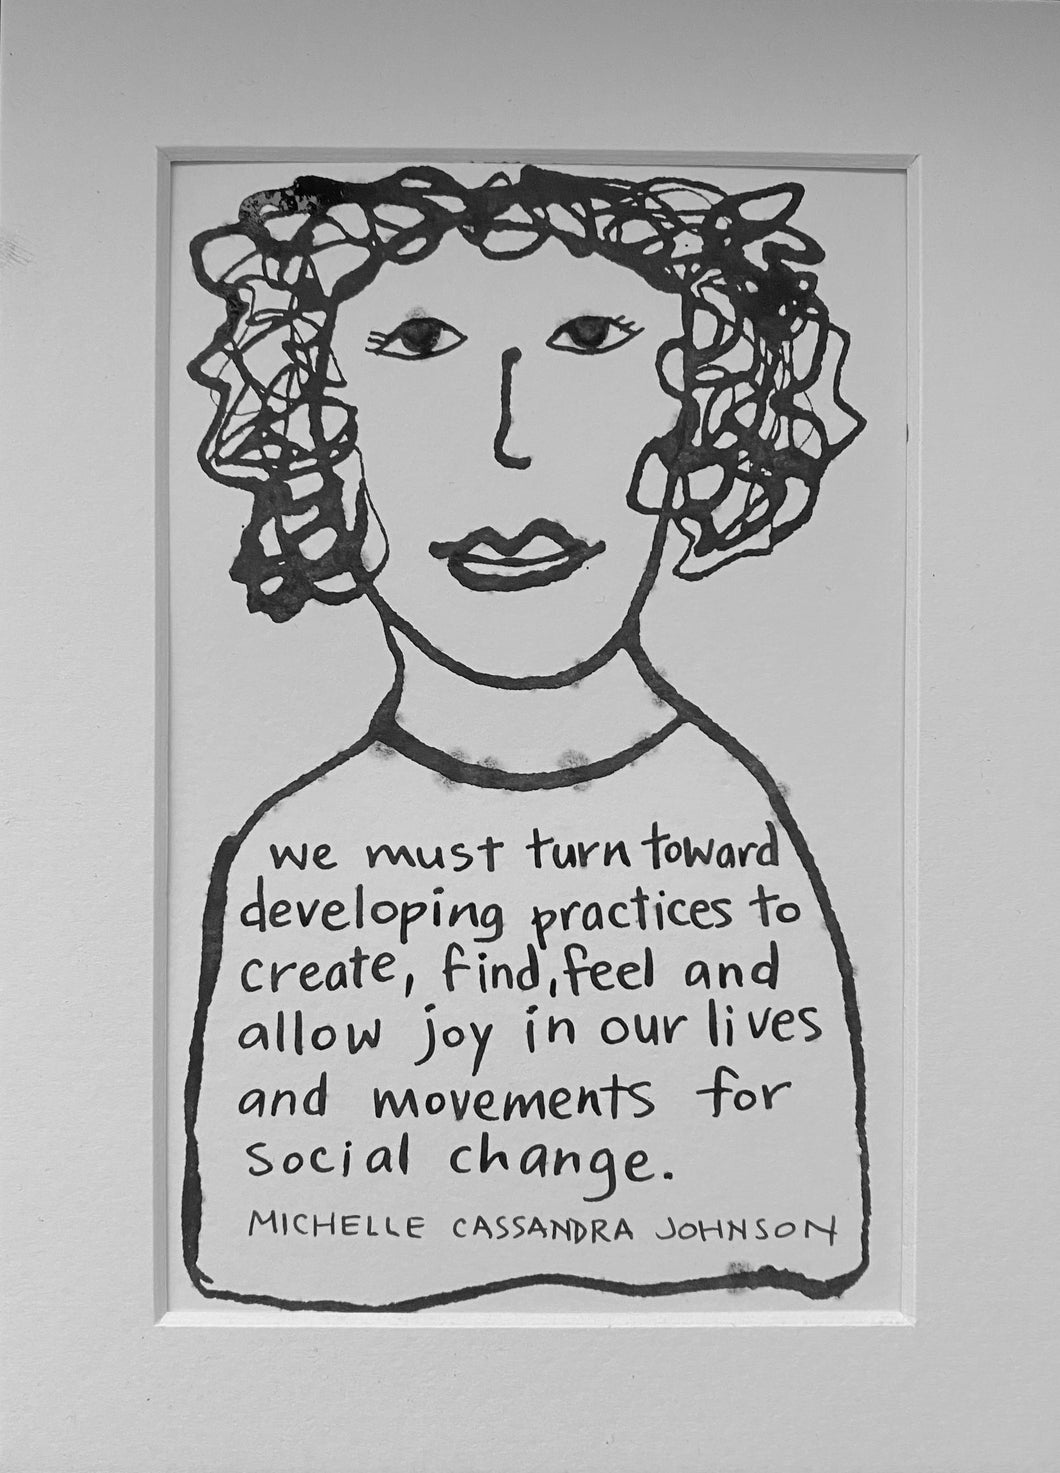 we must turn toward
developing practices to
create, find, feel and
allow joy in our lives
and movements for
social change.
MICHELLE CASSANDRA JOHNSON